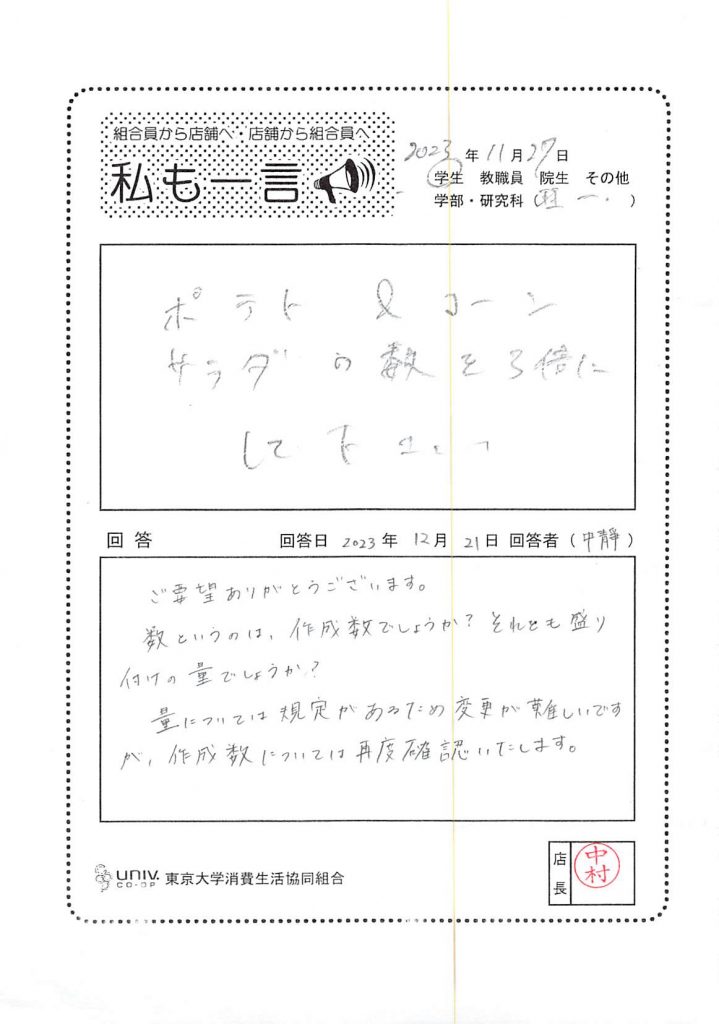 組合員から店舗へ・店舗から組合員へ
私も一言
2023年11月27日
学生 教職員 院生 その他
学部・研究科(理一.)
ポテト & コーン
サラダの数を3倍に
して下さい
回答 回答日 2023年 12月 21日 回答者(中静)
ご要望ありがとうございます。
数というのは、作成数でしょうか?それとも盛り
付けの量でしょうか?
量については規定があるため変更が難しいです
が、作成数については再度確認いたします。
UNIV. CO-OP 東京大学消費生活協同組合
店長
中村